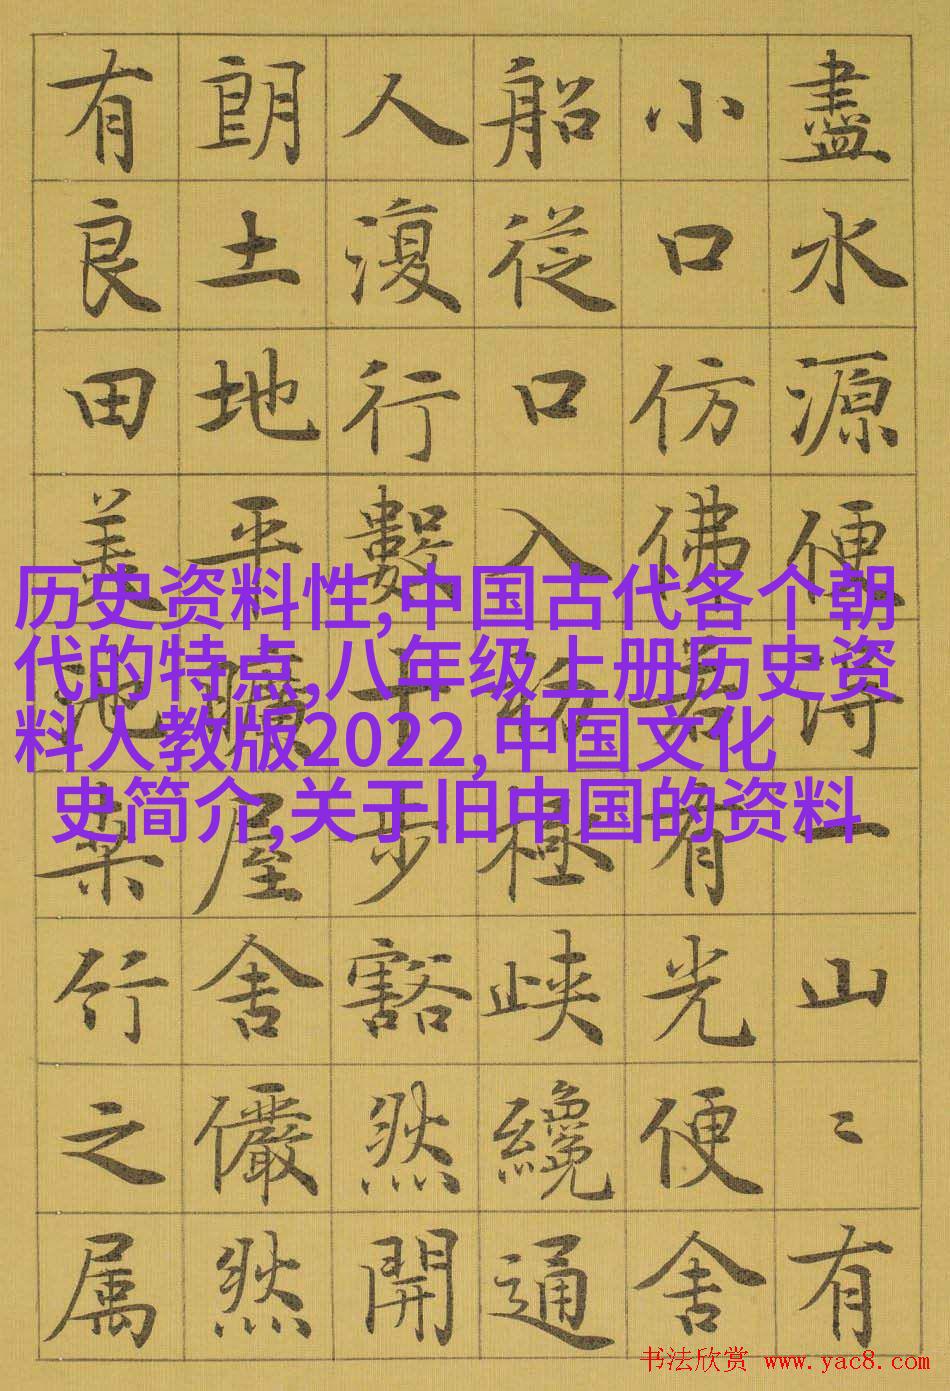 盡水源便得一山〻有
小口仿佛若有光便舍
船從口入初極峽纔通
人復行數十步豁然開
朗土地平曠屋舍儼然
有良田美池桒竹之属
历史资料性,中国古代各个朝
代的特点,八年级上册历史资
料人教版2022,中国文化
史简介,关于旧中国的资料
书法欣赏 www.yac8.com